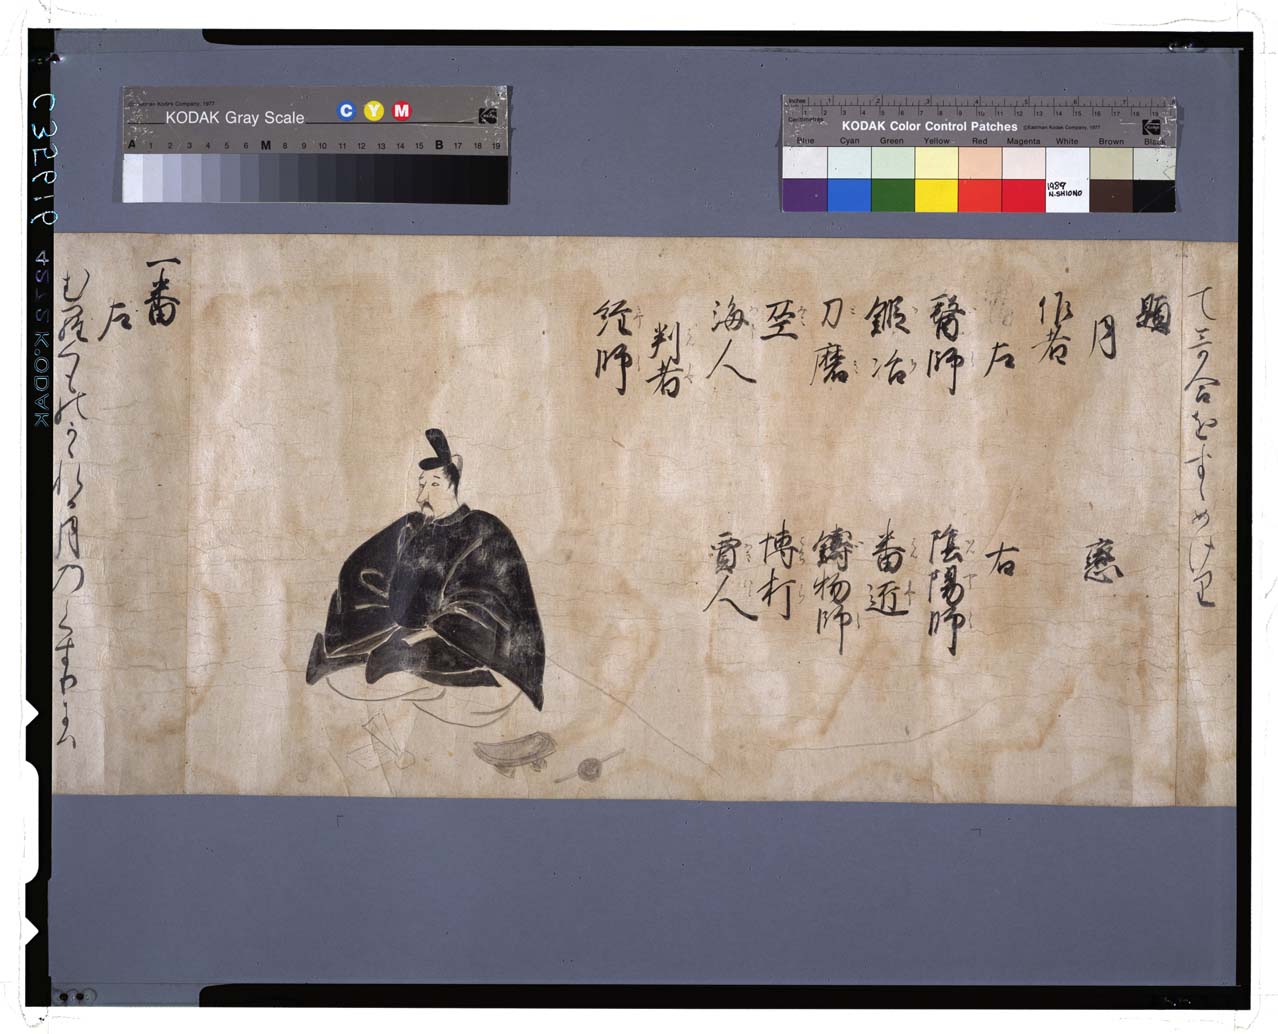 KODAK Gray Scale
C Y M
A 1 2 3 4 5 6 M 8 9 10 11 12 13 14 15 B 17 18 19
KODAK Color Control Patches
Blue Cyan Green Yellow Red Magenta White Brown Black
1989
N.SHIONO
て哥合をすゝめけり
題
月 戀
作者
左 右
醫師 陰陽師
鍛冶 番匠
刀磨 鑄物師
巫 博打
海人 賈人
判者
経師
一番
左
むらくものかゝれる月のくすりには